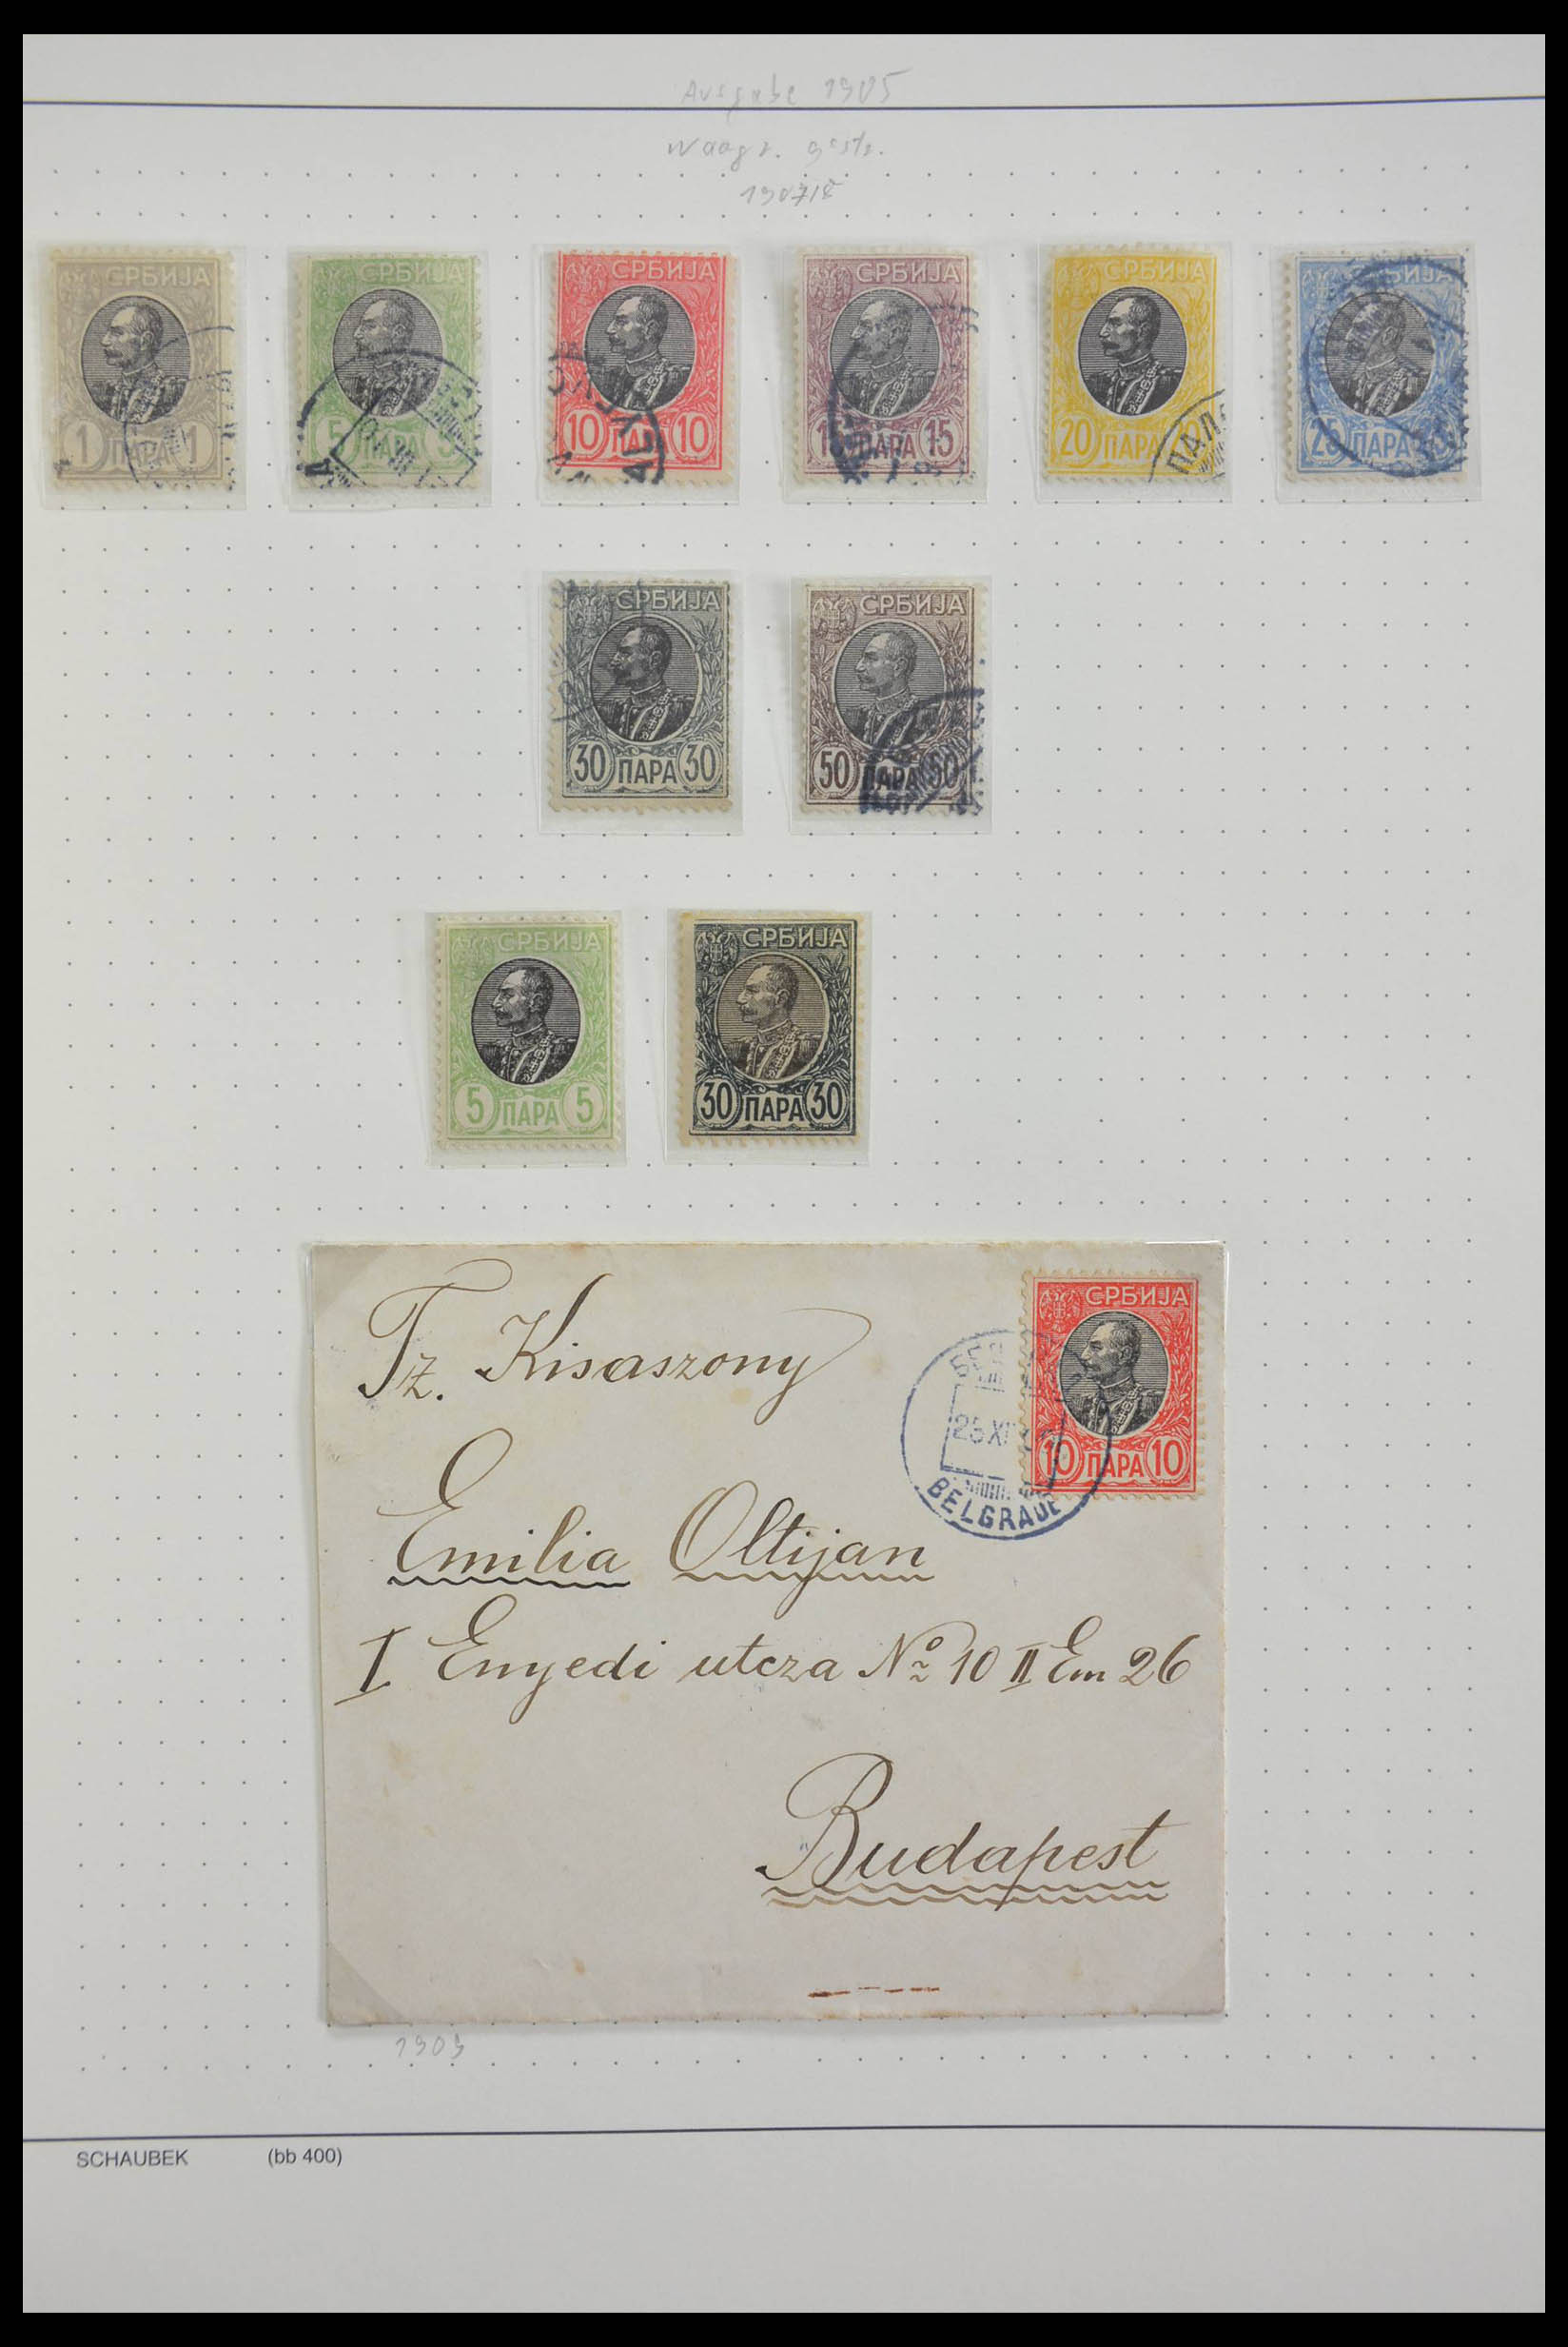 Ausgabe 1905
Waagr. gestr.
1907/8
СРБИЈА
1 ПАРА 1
СРБИЈА
5 ПАРА 5
СРБИЈА
10 ПАРА 10
СРБИЈА
15 ПАРА 15
СРБИЈА
20 ПАРА 20
СРБИЈА
25 ПАРА 25
СРБИЈА
30 ПАРА 30
СРБИЈА
50 ПАРА 50
СРБИЈА
5 ПАРА 5
СРБИЈА
30 ПАРА 30
СРБИЈА
10 ПАРА 10
BELGRADE
Tz. Kisaszony
Emilia Oltijan
I Enyedi utcza No 10 II Em 26
Budapest
1909
SCHAUBEK (bb 400)